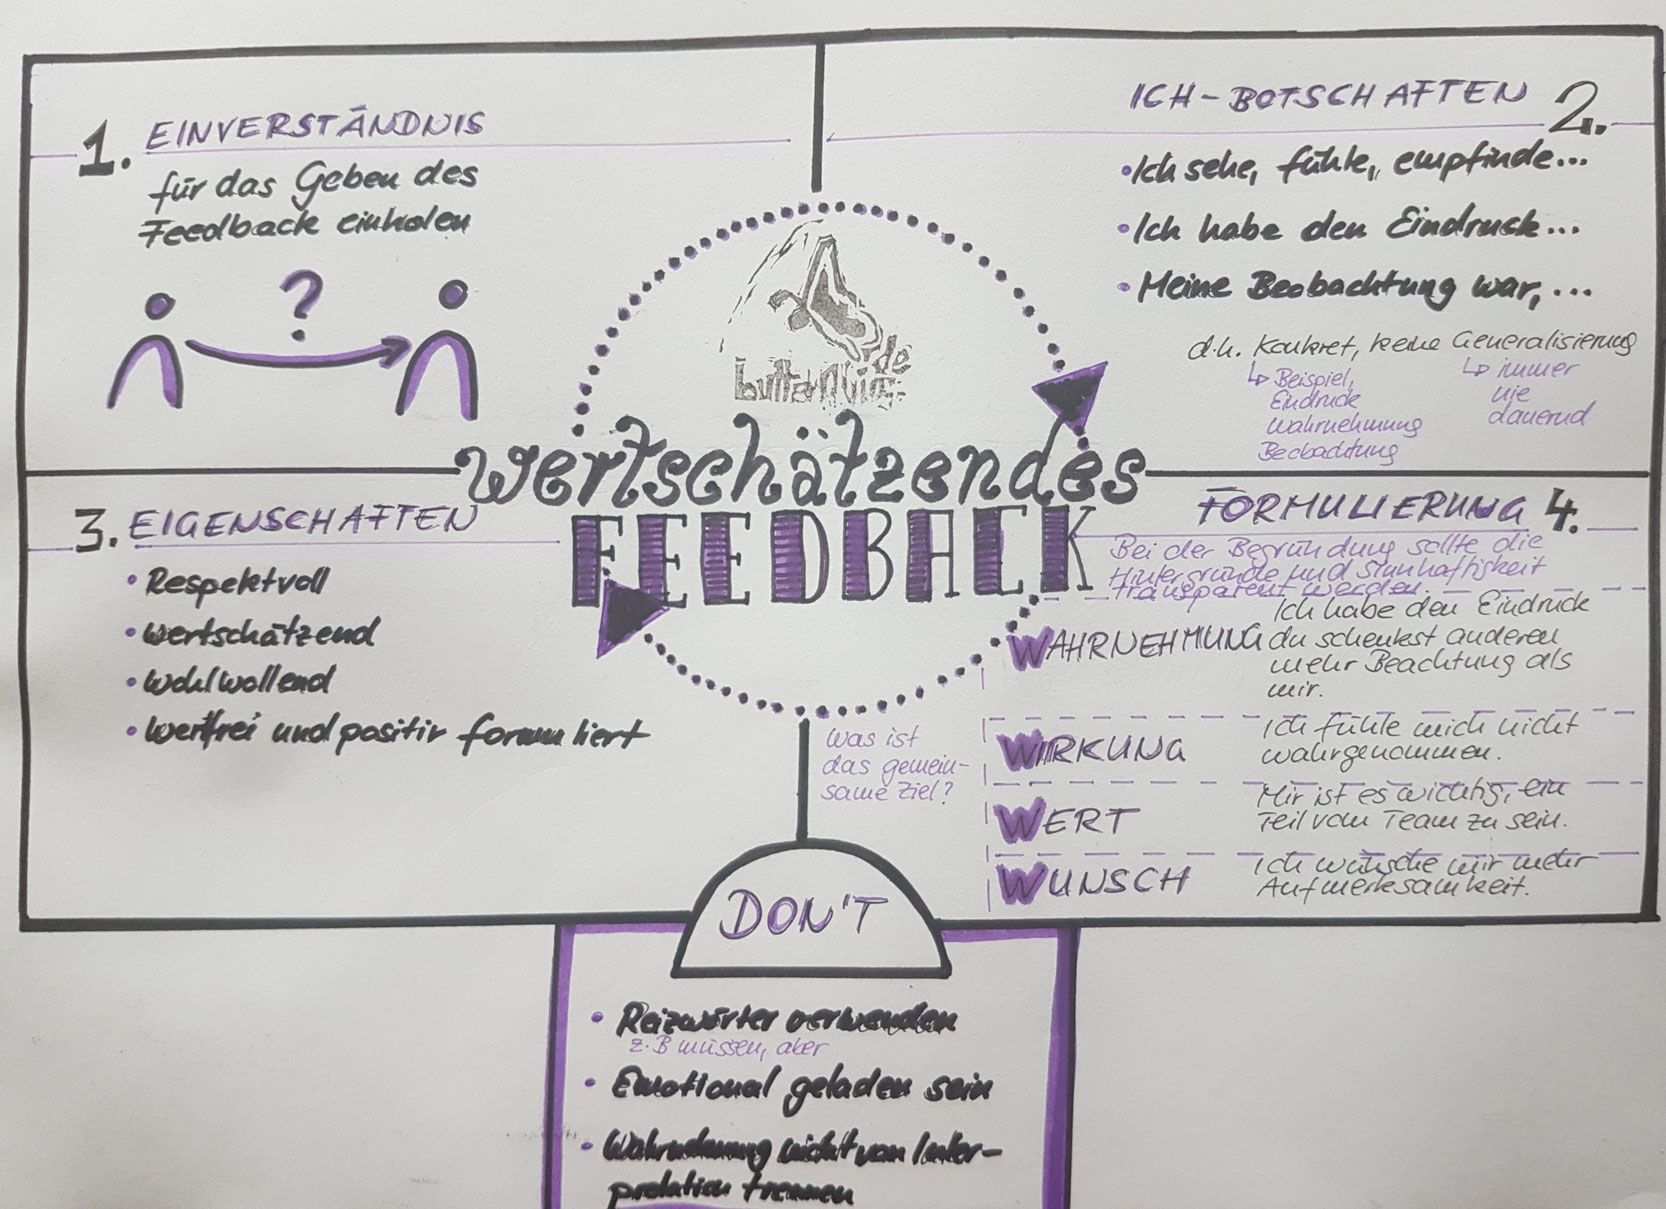 1. EINVERSTÄNDNIS
für das Geben des
Feedback einholen
?
ICH-BOTSCHAFTEN 2.
• Ich sehe, fühle, empfinde...
• Ich habe den Eindruck...
• Meine Beobachtung war, ...
d.h. Konkret, keine Generalisierung
↳ Beispiel,
Eindruck
Wahrnehmung
Beobachtung
↳ immer
nie
dauernd
wertschätzendes
FEEDBACK
3. EIGENSCHAFTEN
• Respektvoll
• wertschätzend
• wohlwollend
• wertfrei und positiv formuliert
FORMULIERUNG 4.
Bei der Begründung sollte die
Hintergründe und Sinnhaftigkeit
transparent werden.
WAHRNEHMUNG
Ich habe den Eindruck
du schenkst anderen
mehr Beachtung als
mir.
WIRKUNG
Ich fühle mich nicht
wahrgenommen.
WERT
Mir ist es wichtig, ein
Teil vom Team zu sein.
WUNSCH
Ich wünsche mir mehr
Aufmerksamkeit.
Was ist
das gemein-
same Ziel?
DON'T
• Reizwörter verwenden
z.B müssen, aber
• Emotional geladen sein
• Wahrnehmung nicht von Inter-
pretation trennen